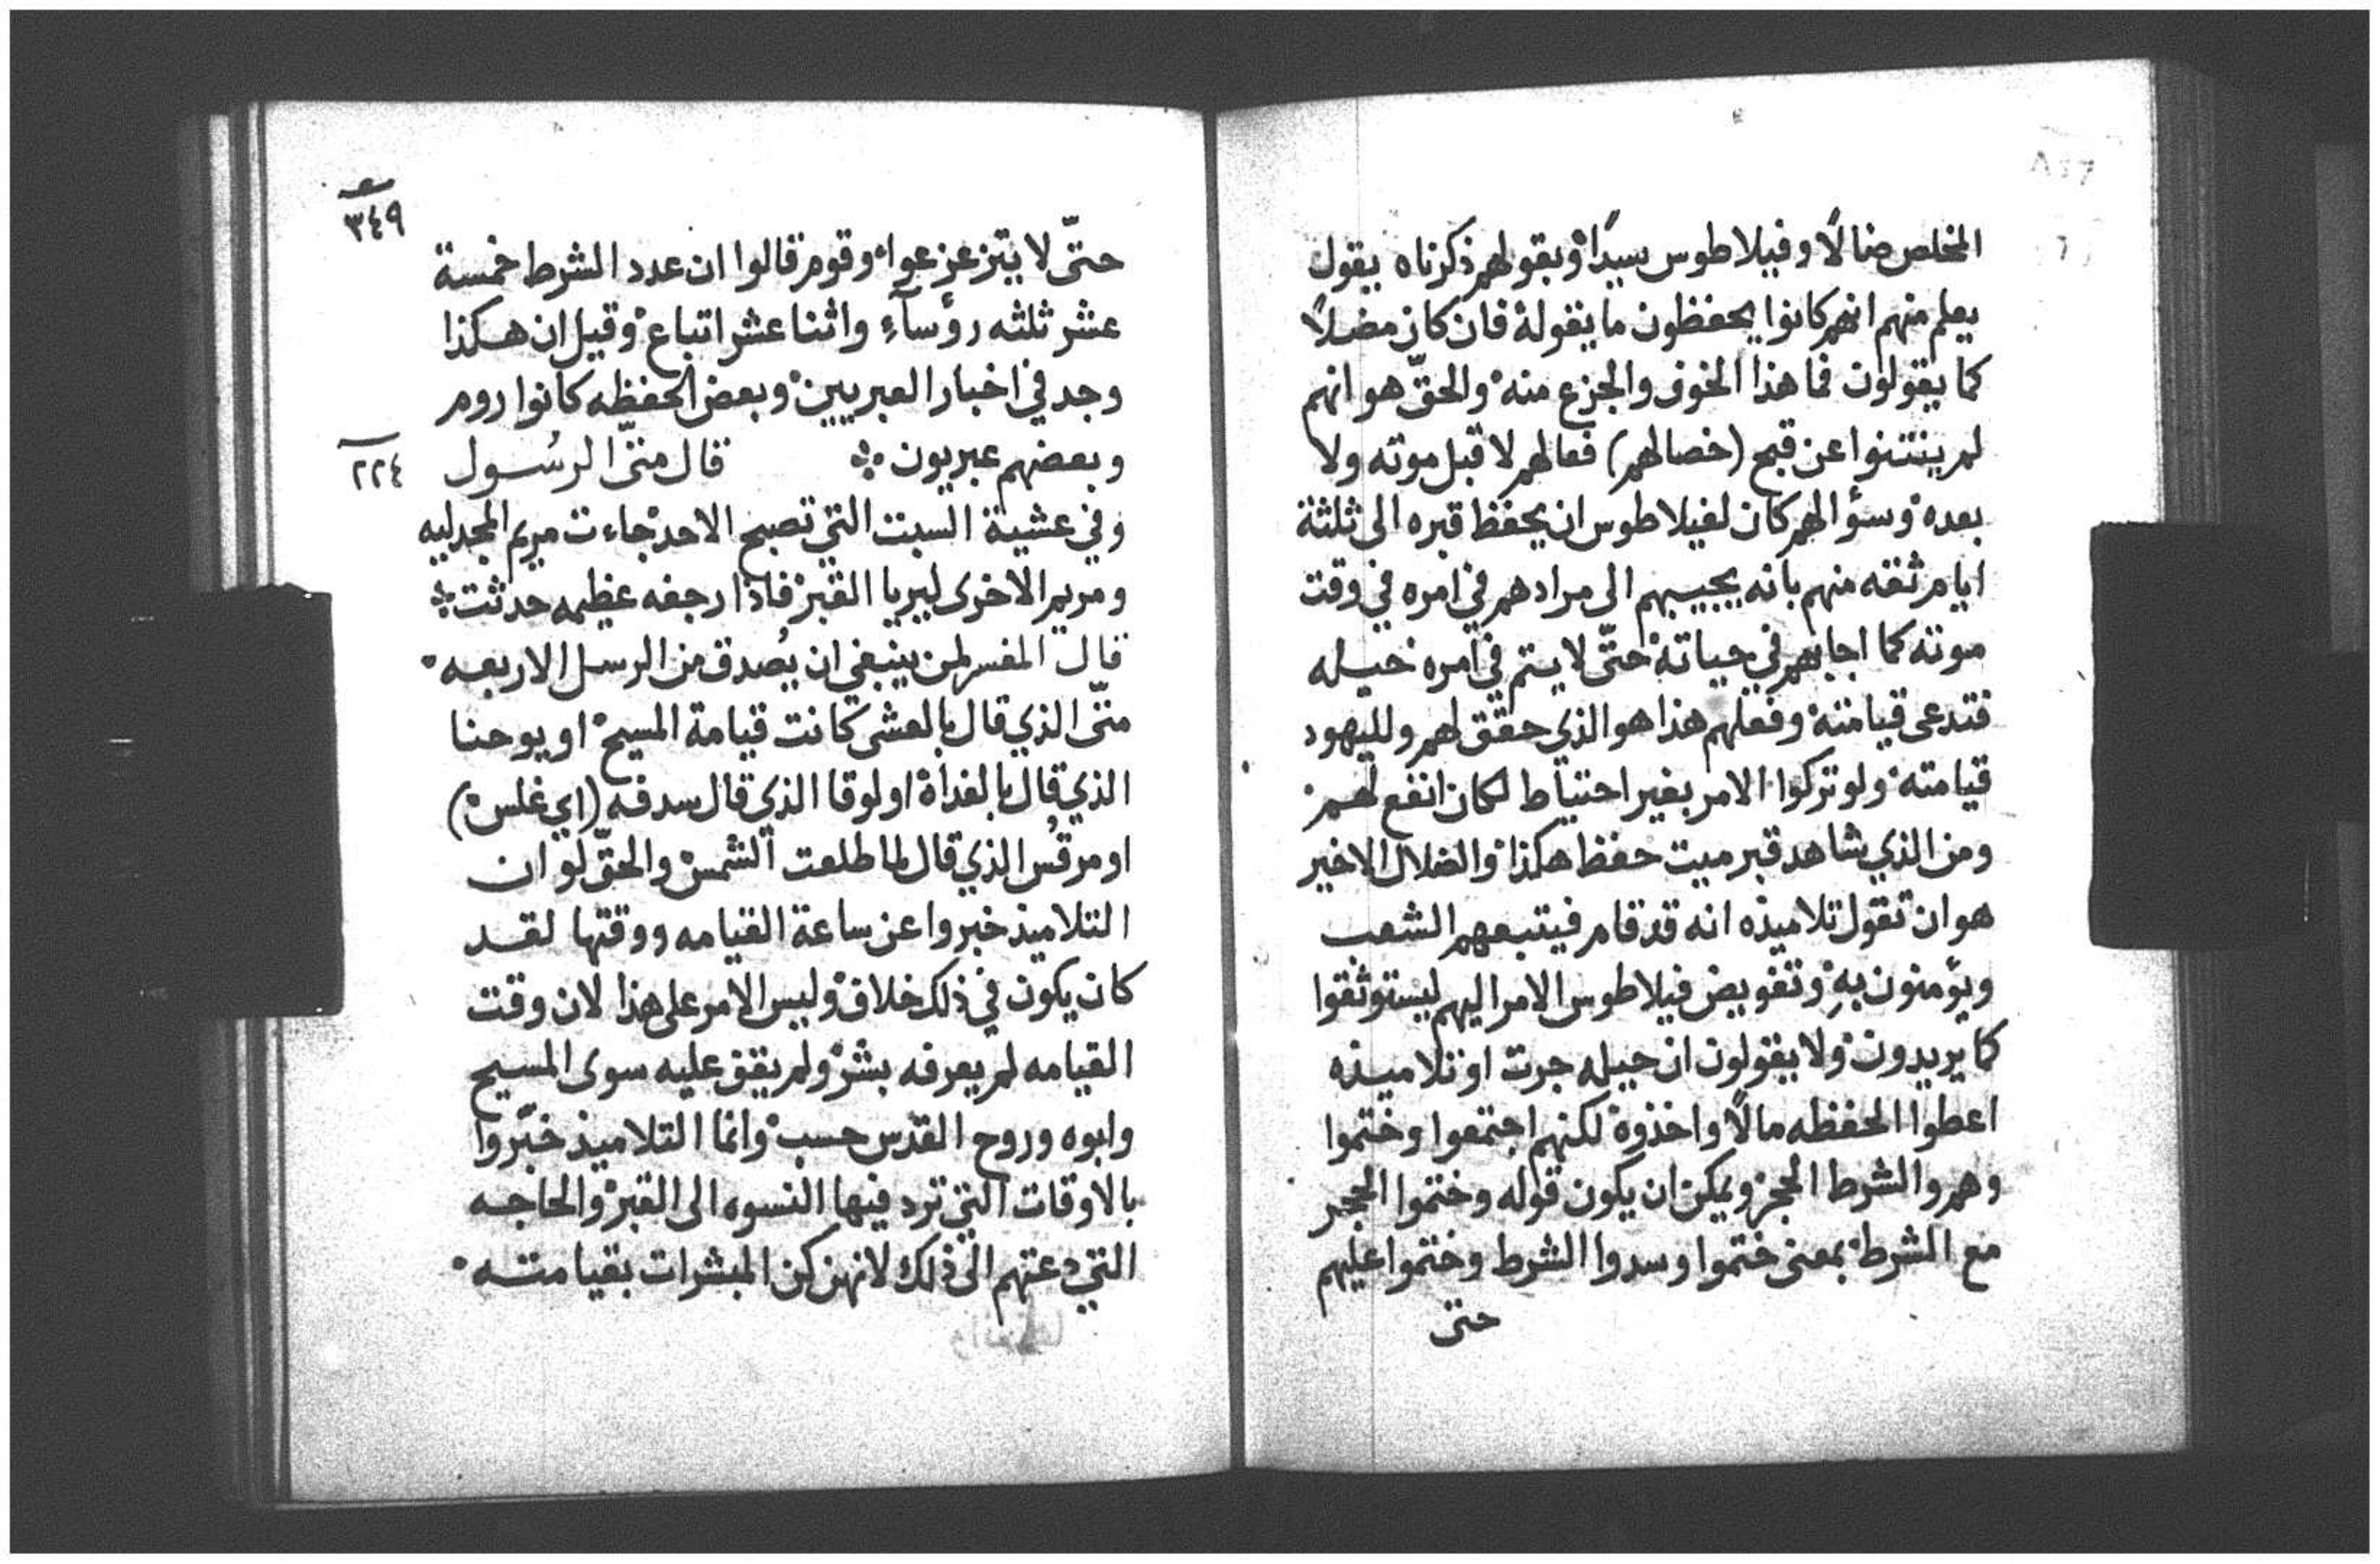 المخلص ضالًا وفيلاطوس سيدًا وبقولهم ذكرناه يقول
يعلم منهم انهم كانوا يحفظون ما يقوله فان كان مضلًا
كما يقولون فما هذا الخوف والجزع منه والحقّ هو انهم
لم ينتنوا عن قبح (خصالهم) فعالهم لا قبل موته ولا
بعده وسؤالهم كان لفيلاطوس ان يحفظ قبره الى ثلثة
ايام ثقه منهم بانه يجيبهم الى مرادهم في امره في وقت
موته كما اجابهم في حياته حتّى لا يتم في امره حيله
فتدعى قيامته وفعلهم هذا هو الذي حقق لهم ولليهود
قيامته ولو تركوا الامر بغير احتياط لكان انفع لهم
ومن الذي شاهد قبر ميت حفظ هكذا والضلال الاخير
هو ان تقول تلاميذه انه قد قام فيتبعهم الشعب
ويؤمنون بهِ وتفويض فيلاطوس الامر اليهم ليستوثقوا
كما يريدون ولا يقولون ان حيله جرت او تلاميذه
اعطوا الحفظه مالًا واخذوه لكنهم اجتمعوا وختموا
وهم والشرط الحجر ويمكن ان يكون قوله وختموا الحجر
مع الشرط بمعنى ختموا وسدوا الشرط وختموا عليهم
حتى
٣٤٩
حتّى لا يتزعزعوا وقوم قالوا ان عدد الشرط خمسة
عشر ثلثه رؤسآءِ واثنا عشر اتباع وقيل ان هكذا
وجد في اخبار العبريين وبعض الحفظه كانوا روم
وبعضهم عبريون ∴ قال متّى الرسُول
٢٢٤
وفي عشية السبت التي تصبح الاحد جاءت مريم المجدليه
ومريم الاخرى ليريا القبر فاذا رجفه عظيمه حدثت ∴
قال المفسر لمن ينبغي ان يُصدق من الرسل الاربعه
متّى الذي قال بالعشى كانت قيامة المسيح او يوحنا
الذي قال بالغداة او لوقا الذي قال سدفه (اي غلس)
او مرقُس الذي قال لما طلعت الشمس والحقّ لو ان
التلاميذ خبروا عن ساعة القيامه ووقتها لقد
كان يكون في ذلك خلاف وليس الامر على هذا لان وقت
القيامه لم يعرفه بشر ولم يقف عليه سوى المسيح
وابوه وروح القدس حسب وانما التلاميذ خبّروا
بالاوقات التي ترد فيها النسوه الى القبر والحاجه
التي دعتهم الى ذلك لانهن كن المبشرات بقيامته